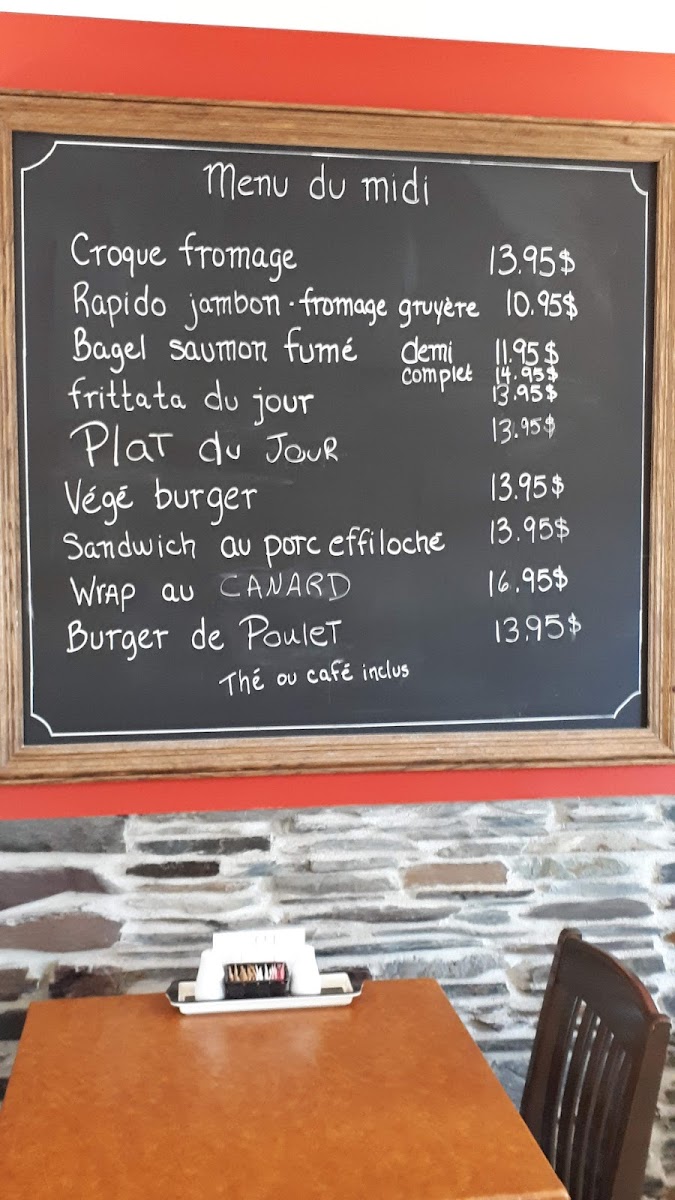 Menu du midi
Croque fromage 13.95$
Rapido jambon-fromage gruyère 10.95$
Bagel saumon fumé demi 11.95$
complet 14.95$
frittata du jour 13.95$
PLAT du JOUR 13.95$
Végé burger 13.95$
Sandwich au porc effiloché 13.95$
Wrap au CANARD 16.95$
Burger de Poulet 13.95$
Thé ou café inclus